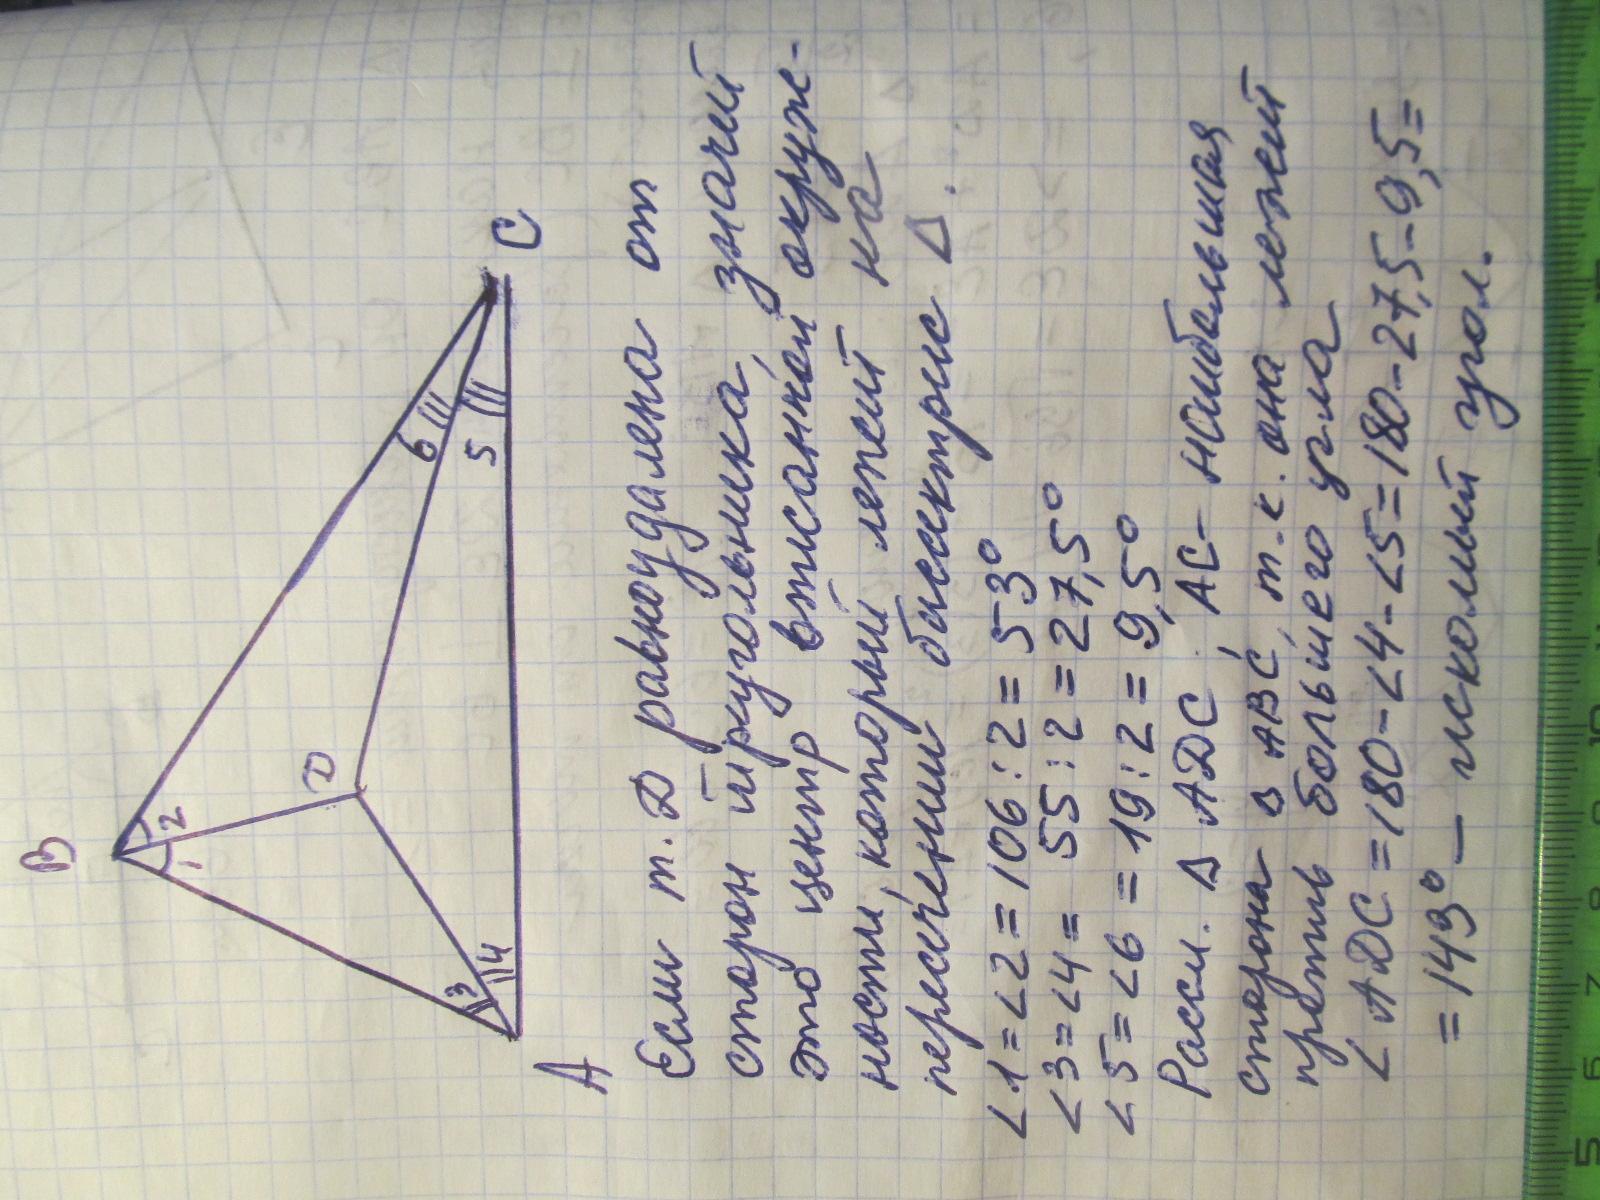 B
1 2
D
3 4
6
5
A
C
Если т. D равноудалена от
сторон треугольника, значит
это центр вписанной окруж-
ности, который лежит на
пересечении биссектрис Δ.
∠1=∠2=106:2=53°
∠3=∠4= 55:2=27,5°
∠5=∠6=19:2=9,5°
Рассм. Δ ADC. AC- наибольшая
сторона в ABC, т.к. она лежит
против большего угла
∠ADC=180-∠4-∠5=180-27,5-9,5=
=143°- искомый угол.
5 6 7 8 9 10 11